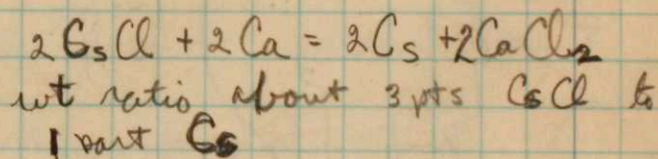 2CsCl + 2Ca = 2Cs + 2CaCl2
wt ratio about 3 pts CsCl to
1 part Cs